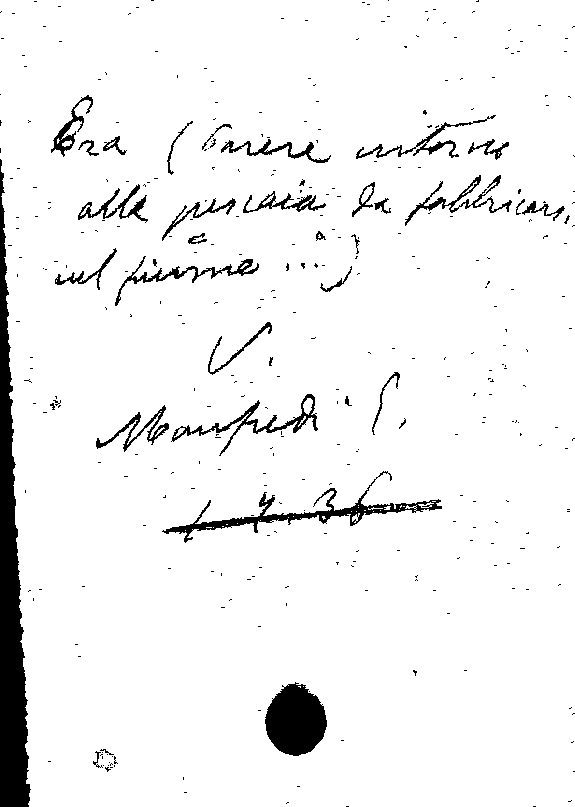 Era (Parere intorno
alla pescaia da fabbricarsi
nel fiume ...)
V.
Manfredi E.
1736